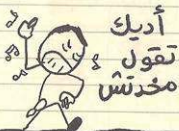 أديك
تقول
مخدتش